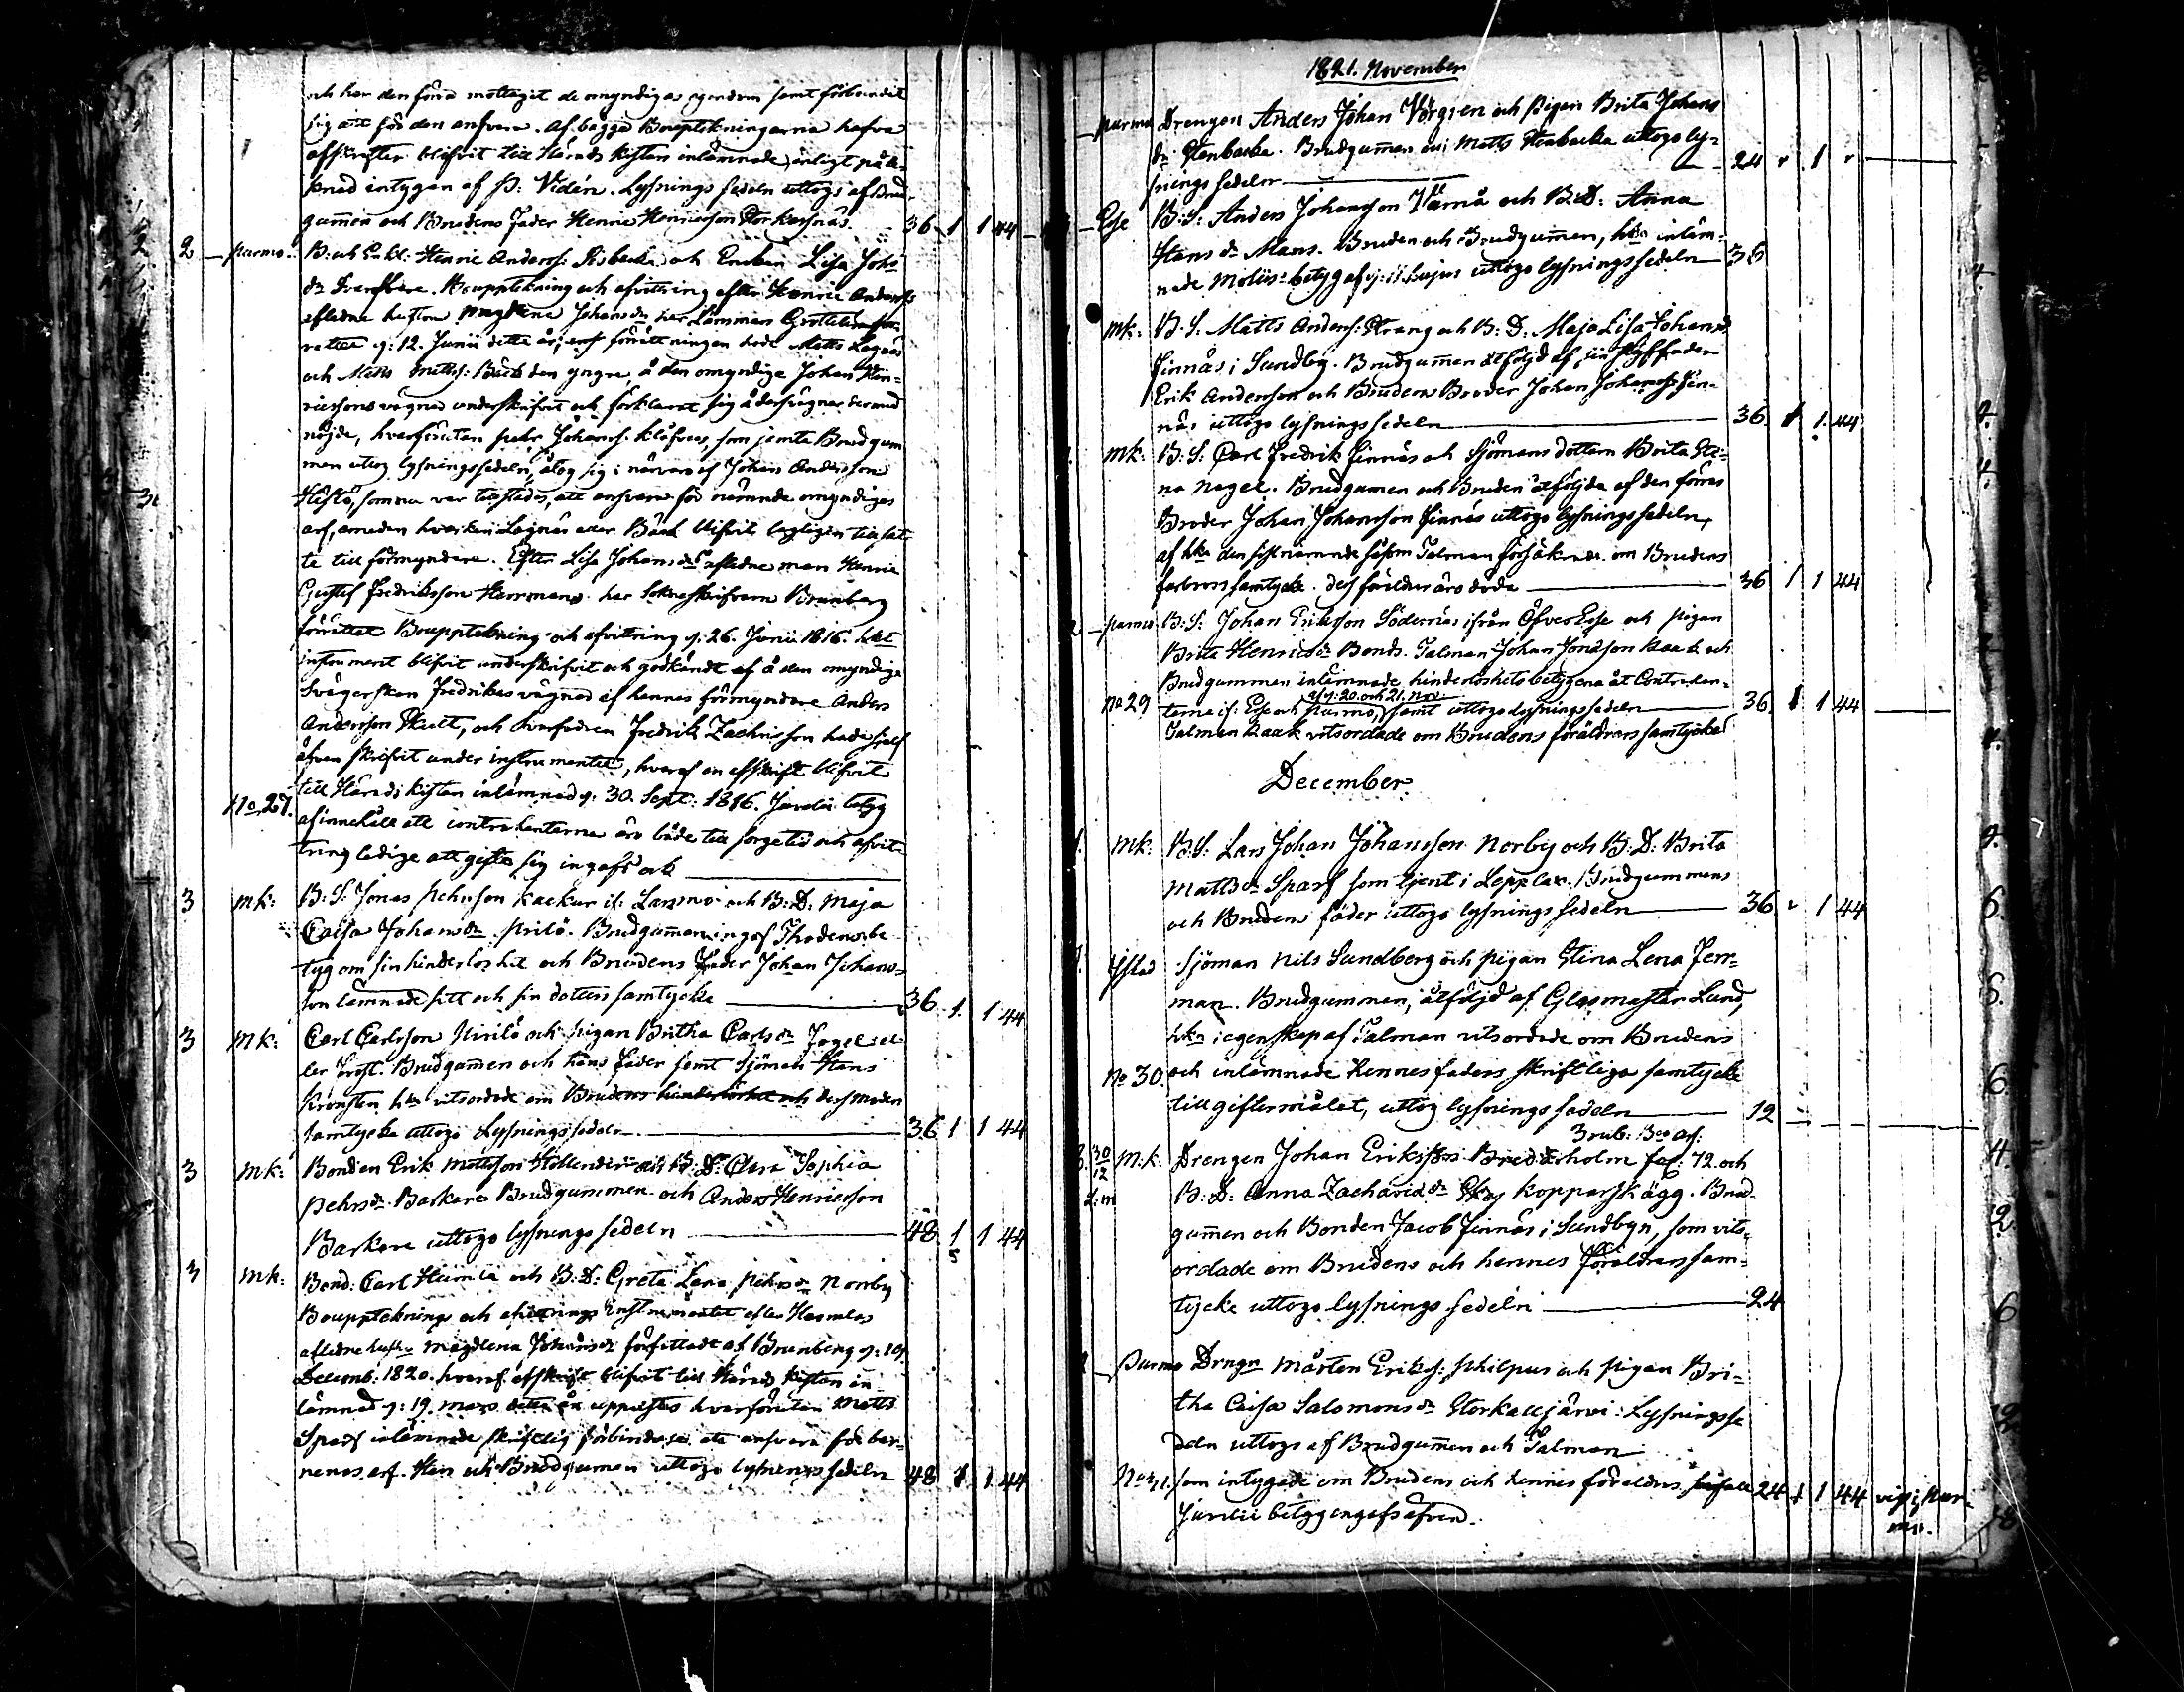 och har den förra mottagit de omyndigas egendom samt förbundit
sig att för den ansvara. Af bägge Bouptekningarna hafva
afskrifter blifvit till Härads kistan inlämnade, enligt påte-
knad intygan af P: Vidén. Lysnings sedeln uttogs af Brud-
gum̅en och Brudens Fader Henric Henricsson Storkarsnäs. 36 1 1 44
2 Purmo. B: och Enkl: Henric Anderss: Lisbacka och Enkan Lisa Joh:
dr. Bouptekning och afvittring efter Henric Anderss:
aflidna hustru Magdlena Johans dr har Länsman för-
rättat d: 12. Junii detta år; förrättningen hade Matts Lagnäs
och Matts Mattss: Bäck den yngre, å den omyndige Johan Hen-
ricssons vägnar underskrifvit och förklarat sig å dess vägnar dermed
nöjde, hvarförutan Pehr Johanss: Klöfvar, som jemte Brudgum
men uttog lysningssedeln, åtog sig i närvaro af Johan Andersson
som nu var tillstädes, att ansvara för nämnde omyndiges
arf, emedan hvarken Lagnäs eller Bäck blifvit lagligen tillsat-
te till förmyndare. Efter Lisa Johans drs aflidne man Henric
Gustaf Fredriksson Herrmans har Sokneskrifvaren Brunberg
förrättat Bouptekning och afvittring d: 26. Junii 1816. hket
instrument blifvit underskrifvit och godkändt af å den omyndiga
Svägerskan Fredrikas vägnar af hennes förmyndare Anders
Andersson Skutt, och Svärfadren Fredrik Zachrisson hade sjelf
äfven skrifvit under instrumentet, hvaraf en afskrift blifvit
till Härads kistan inlämnad d: 30. Sept: 1816. Juvelii betyg
No 27. af innehåll att contrahenterna äro både till sorgetid och afvit-
tring ledige att gifta sig ingafs ock
3 Mk: B: S: Jonas Pehrsson Kackur if: Larsmo och B: D: Maja
Caisa Johans dr Prilö. Brudgum̅en ingaf Thodens be-
tyg om sin hinderlöshet och Brudens Fader Johan Johans-
son lämnade sitt och sin dotters samtycke 36. 1. 1 44
3 Mk: Carl Carlsson Hirilö och pigan Britha Carls dr Fogel el-
ler Frost. Brudgum̅en och hans Fader samt Sjöman Hans
Kronsten hkn vitsordade om Brudens hinderlöshet och dess moders
samtycke uttogo Lysnings sedeln. 36 1 1 44
3 Mk: Bonden Erik Mattsson Hollender och B: D: Clara Sophia
Pehrs dr Backare Brudgummen och Anders Henricsson
Backare uttogo lysnings sedeln 48. 1 1 44
5
3 Mk: Bond: Carl Humla och B: D: Greta Lena Pehrs dr Norrby
Bouptecknings och afvittrings Instrumentet efter Humlas
aflidne hustru Magdlena Johans dr författadt af Brunberg d: 19.
Decemb: 1820. hvaraf afskrift blifvit till Härads kistan in-
lämnad d: 19. Mars detta år uppvistes hvarförutan Matts
Sparf inlämnade skriftelig förbindelse att ansvara för bar-
nenas arf. Han och Brudgumen uttogo lysnings sedeln 48 1. 1 44
1821. November
Purmo Drengen Anders Johan Vörgren och Pigan Brita Johans
dr Stenbacka. Brudgum̅en och Matts Stenbacka uttogo ly-
snings sedeln 24 1
Esse B: S: Anders Johansson Värnå och B: D: Anna
Hans dr Mans. Bruden och Brudgum̅en, hkn inläm-
nade Moliis betyg af d: 11. hujus uttogo lysningssedeln 36
Mk: B. S. Matts Anderss: Strang och B: D: Maja Lisa Johans dr
Finnäs i Sundby. Brudgum̅en åtföljd af sin Styffader
Erik Andersson och Brudens Broder Johan Johanss: Fin-
näs uttogo lysnings sedeln 36. 1 1. 44
Mk: B: S: Carl Fredrik Finnäs och Sjömans dottern Brita Sti-
na Nagel. Brudgumen och Bruden åtföljde af den förres
Broder Johan Johansson Finnäs uttogo lysnings sedeln,
af hkn den sistnämnde såsom Talman försäkrade om Brudens
farbrors samtycke. dess föräldrar äro döde 36 1 1 44
Purmo B: S: Johan Eriksson Södernäs ifrån Öfver Esse och pigan
Brita Henrics dr Bonds. Talman Johan Jonasson Kaak och
Brudgummen inlämnade hinderlöshets betygena åt Contrahen-
af d: 20. och 21. Nov.
No 29 terne if: Esse och Purmo, samt uttogo lysningssedeln 36. 1 1 44
Talman Kaak vitsordade om Brudens föräldrars samtycke
December
1. Mk: B: S: Lars Johan Johansson Norby och B: D: Brita
Matts dr Sparf som tjent i Lepplax. Brudgummens
och Brudens fäder uttogo lysnings sedeln 36 1 44
Ystad Sjöman Nils Sundberg och pigan Stina Lena Ferr-
man. Brudgummen, åtföljd af Glasmästar Lund,
hkn i egenskap af Talman vitsordade om Brudens
No 30. och inlämnade hennes faders skriftliga samtycke
till giftermålet, uttog lysnings sedeln 12
3 rub: Bco af:
30/12 Mk: Drengen Johan Eriksson Bredarholm 72. och
B: D: Anna Zacharia dr Skog Kopparskägg. Brud-
gum̅en och Bonden Jacob Finnäs i Sundbyn, som vits-
ordade om Brudens och hennes föräldrars sam-
tycke uttogo lysnings sedeln 24
Purmo Drngn Mårten Erikss: Philpus och pigan Bri-
tha Caisa Salomons dr Storkalljärvi: Lysningsse
deln uttogs af Brudgum̅en och Talman
No 31. som intygade om Brudens och hennes föräldrars 24 1 1 44 vigs i Pur-
mo.
Juvelii betyg ingafs äfven.